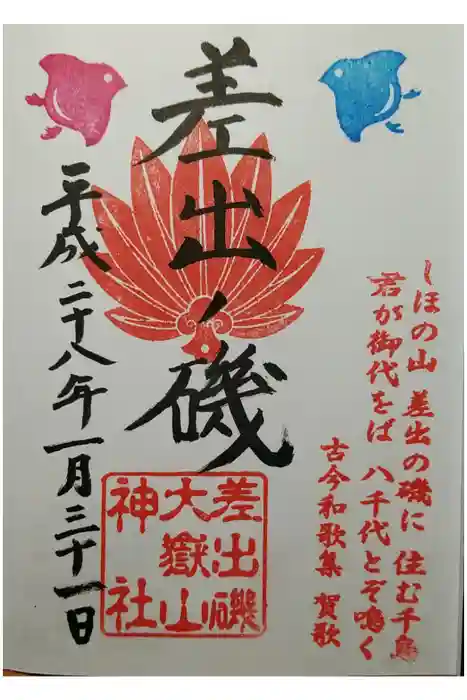 しほの山 差出の磯に 住む千鳥
君が御代をば 八千代とぞ鳴く
古今和歌集 賀歌
差出ノ磯
平成二十八年一月三十一日
差出磯
大嶽山
神社